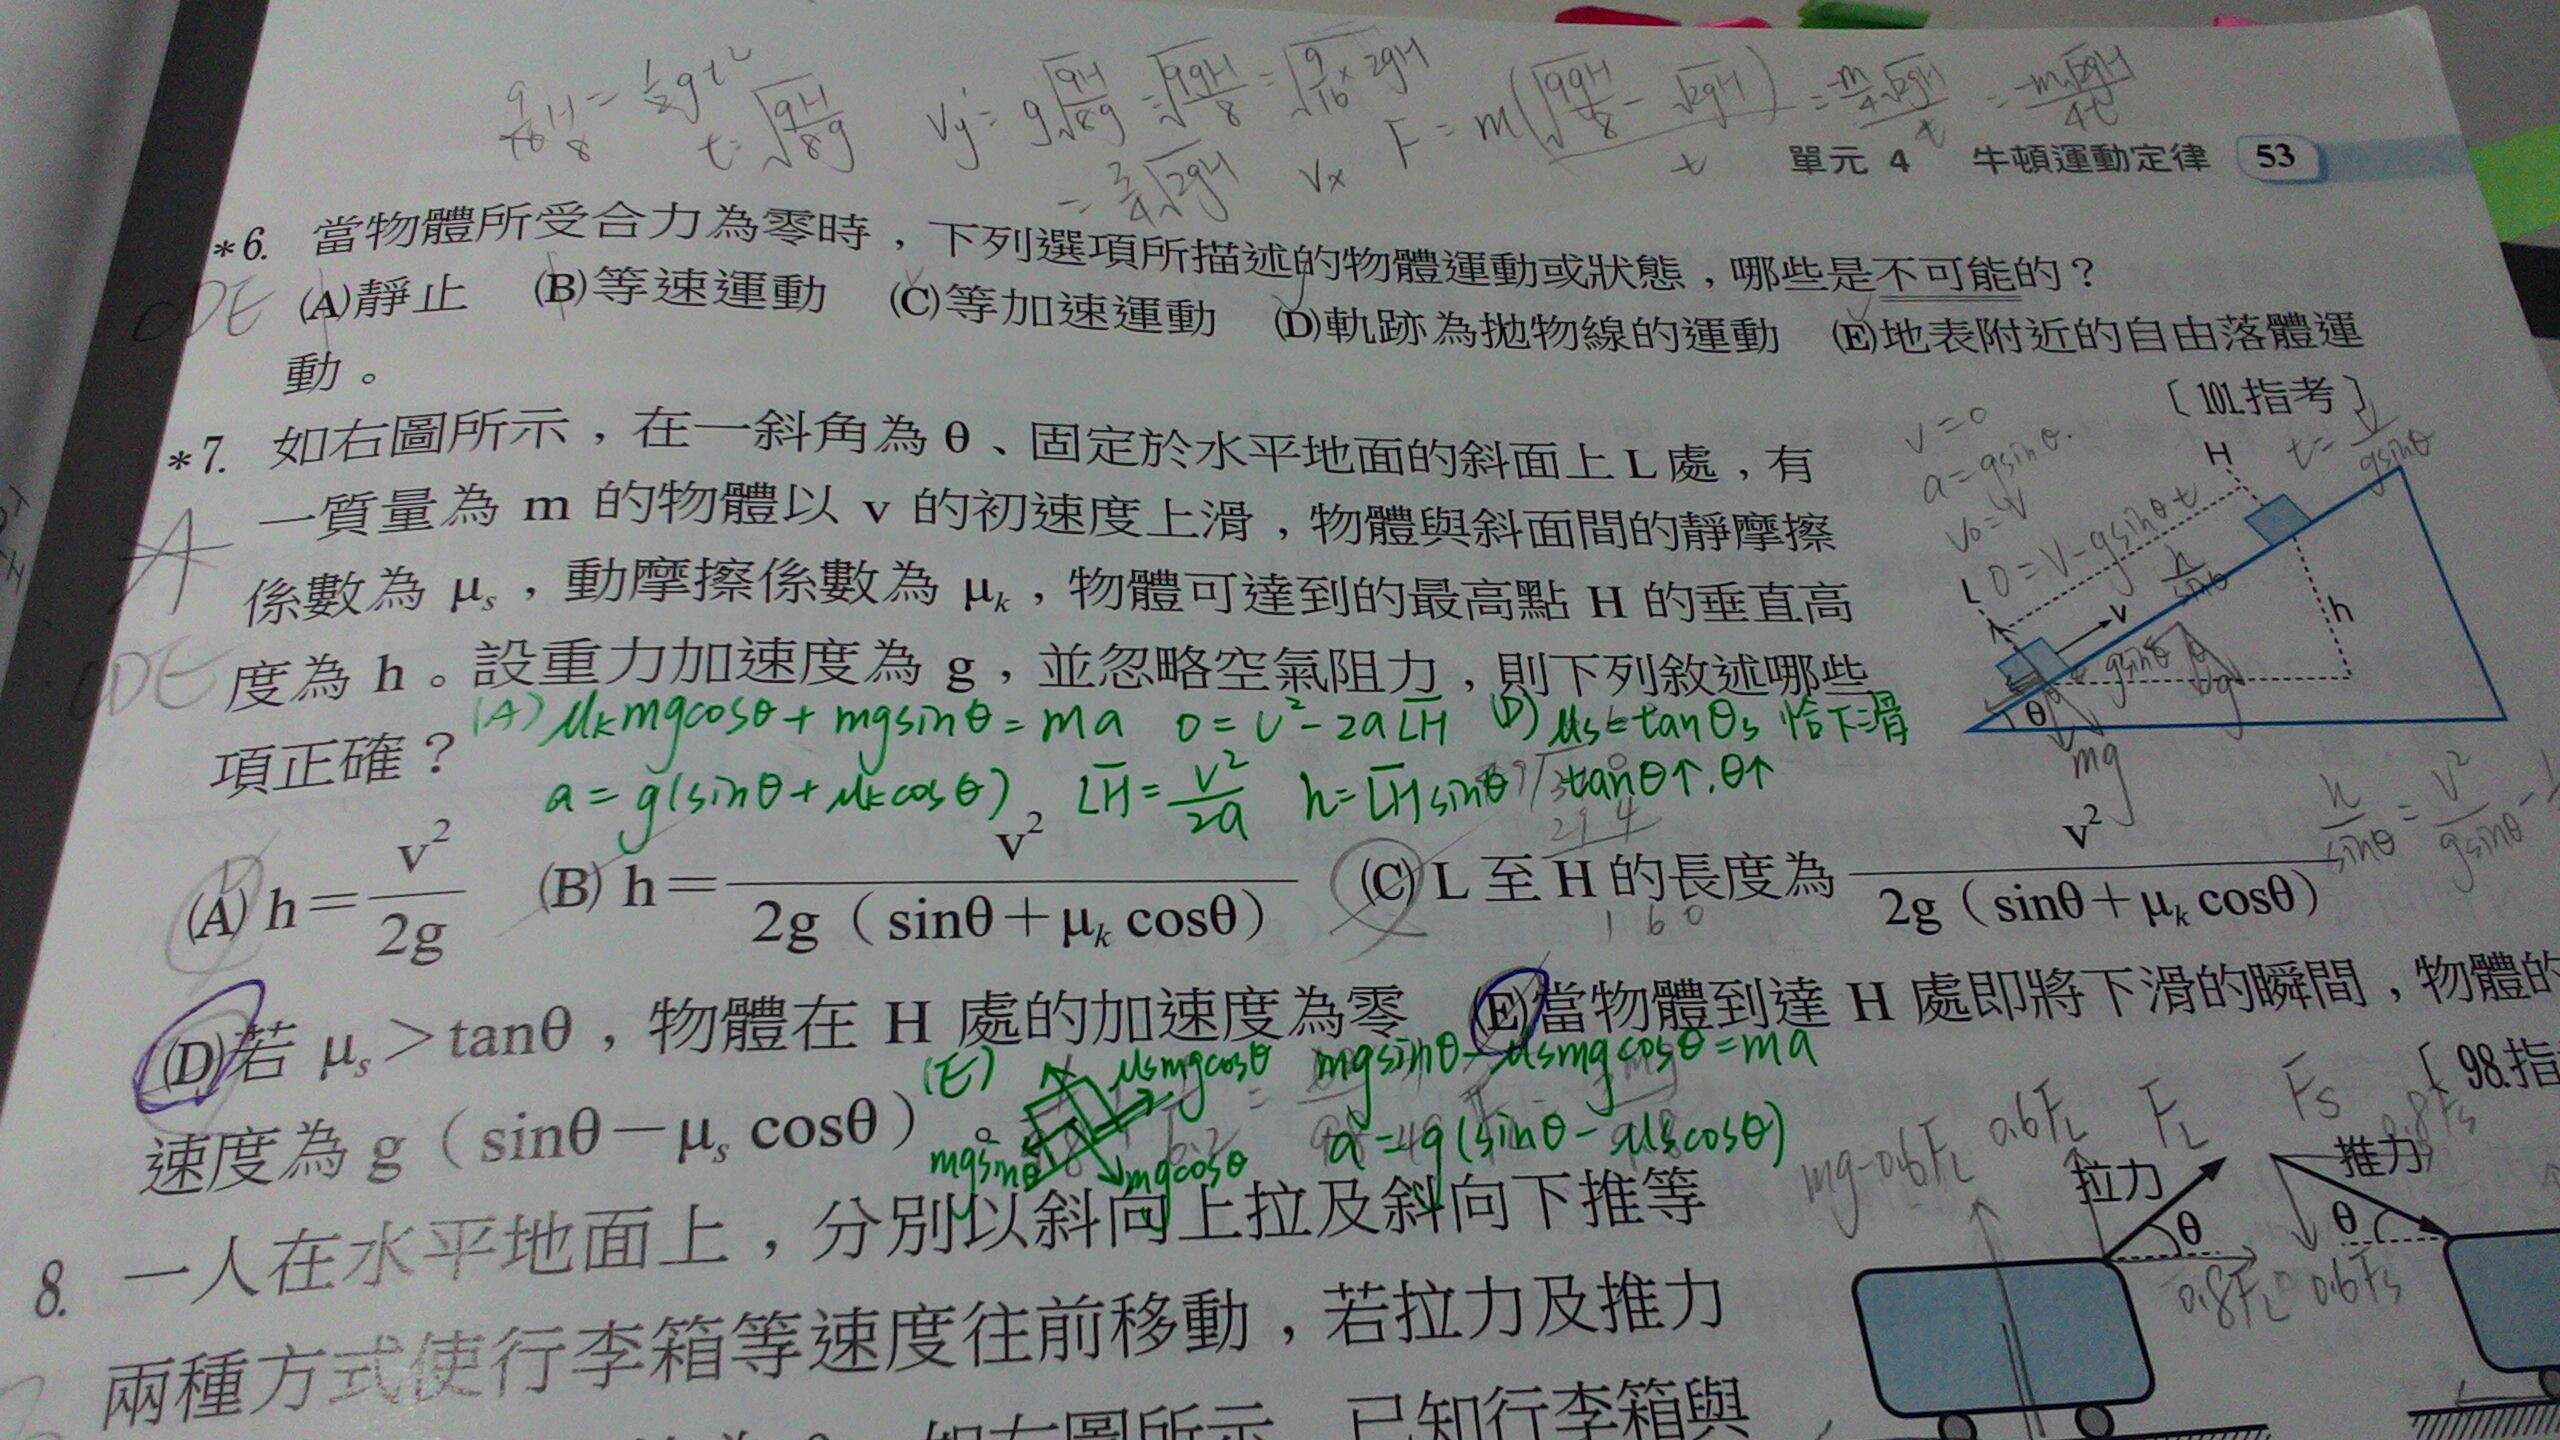 9/16 H/8 = 1/2 gt²
t = √(9H/8g)
Vy' = g√(9H/8g) = √(9gH/8) = √(9/16 × 2gH)
= 3/4 √2gH
Vx
F = m(√(9gH/8) − √2gH)/t = m/4 √2gH / t = m√2gH / 4t
單元 4 牛頓運動定律 53
*6. 當物體所受合力為零時，下列選項所描述的物體運動或狀態，哪些是不可能的？
CDE
(A)靜止 (B)等速運動 (C)等加速運動 (D)軌跡為拋物線的運動 (E)地表附近的自由落體運
動。
〔101.指考〕
*7. 如右圖所示，在一斜角為 θ、固定於水平地面的斜面上 L 處，有
一質量為 m 的物體以 v 的初速度上滑，物體與斜面間的靜摩擦
A
係數為 μs，動摩擦係數為 μk，物體可達到的最高點 H 的垂直高
CDE
度為 h。設重力加速度為 g，並忽略空氣阻力，則下列敘述哪些
項正確？
v=0
a=gsinθ.
v₀=v
0=v−gsinθt
t= v/gsinθ
H
L
v
h
h/sinθ
gsinθ
θ
g
θ
mg
(A) μkmgcosθ+mgsinθ=ma 0=v²−2aLH (D) μs=tanθs 恰下滑
a=g(sinθ+μkcosθ) LH=v²/2a h=LHsinθ tanθ↑,θ↑
h/sinθ = v²/gsinθ −
(A) h=v²/2g (B) h=v²/2g（sinθ+μk cosθ） (C) L 至 H 的長度為 v²/2g（sinθ+μk cosθ）
160
(D)若 μs＞tanθ，物體在 H 處的加速度為零 (E)當物體到達 H 處即將下滑的瞬間，物體的
(E) μsmgcosθ mgsinθ−μsmgcosθ=ma
〔98.指
速度為 g（sinθ−μs cosθ）。
mgsinθ mgcosθ a=g(sinθ−μscosθ)
8. 一人在水平地面上，分別以斜向上拉及斜向下推等
兩種方式使行李箱等速度往前移動，若拉力及推力
如右圖所示 已知行李箱與
mg−0.6FL 0.6FL FL Fs 0.8Fs
拉力 推力
θ θ
0.8FL 0.6Fs